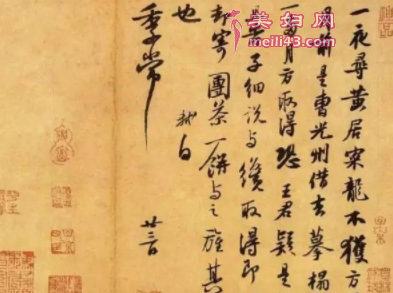 美妇网
meili43.com
一夜尋黄居寀龍不獲方
前是曹光州借去摹搨
一兩月方取得恐王君疑是
告子細說與纔取得即
却寄團茶一餅與之旌其
也 軾白
季常
廿三日